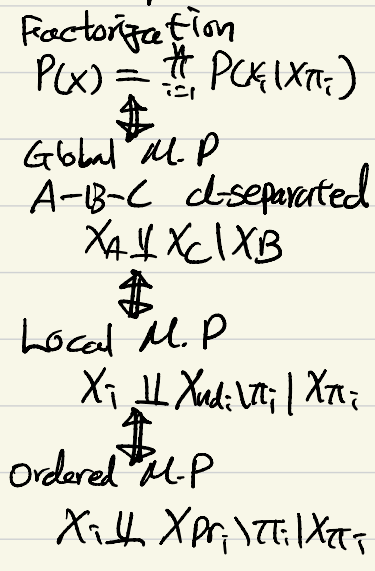 Factorization
P(x) = π i=1 P(xi|xπi)
⇕
Global M.P
A-B-C d-separated
XA ⫫ XC|XB
⇕
Local M.P
Xi ⫫ Xndi\πi | Xπi
⇕
Ordered M.P
Xi ⫫ Xpri\πi|Xπi